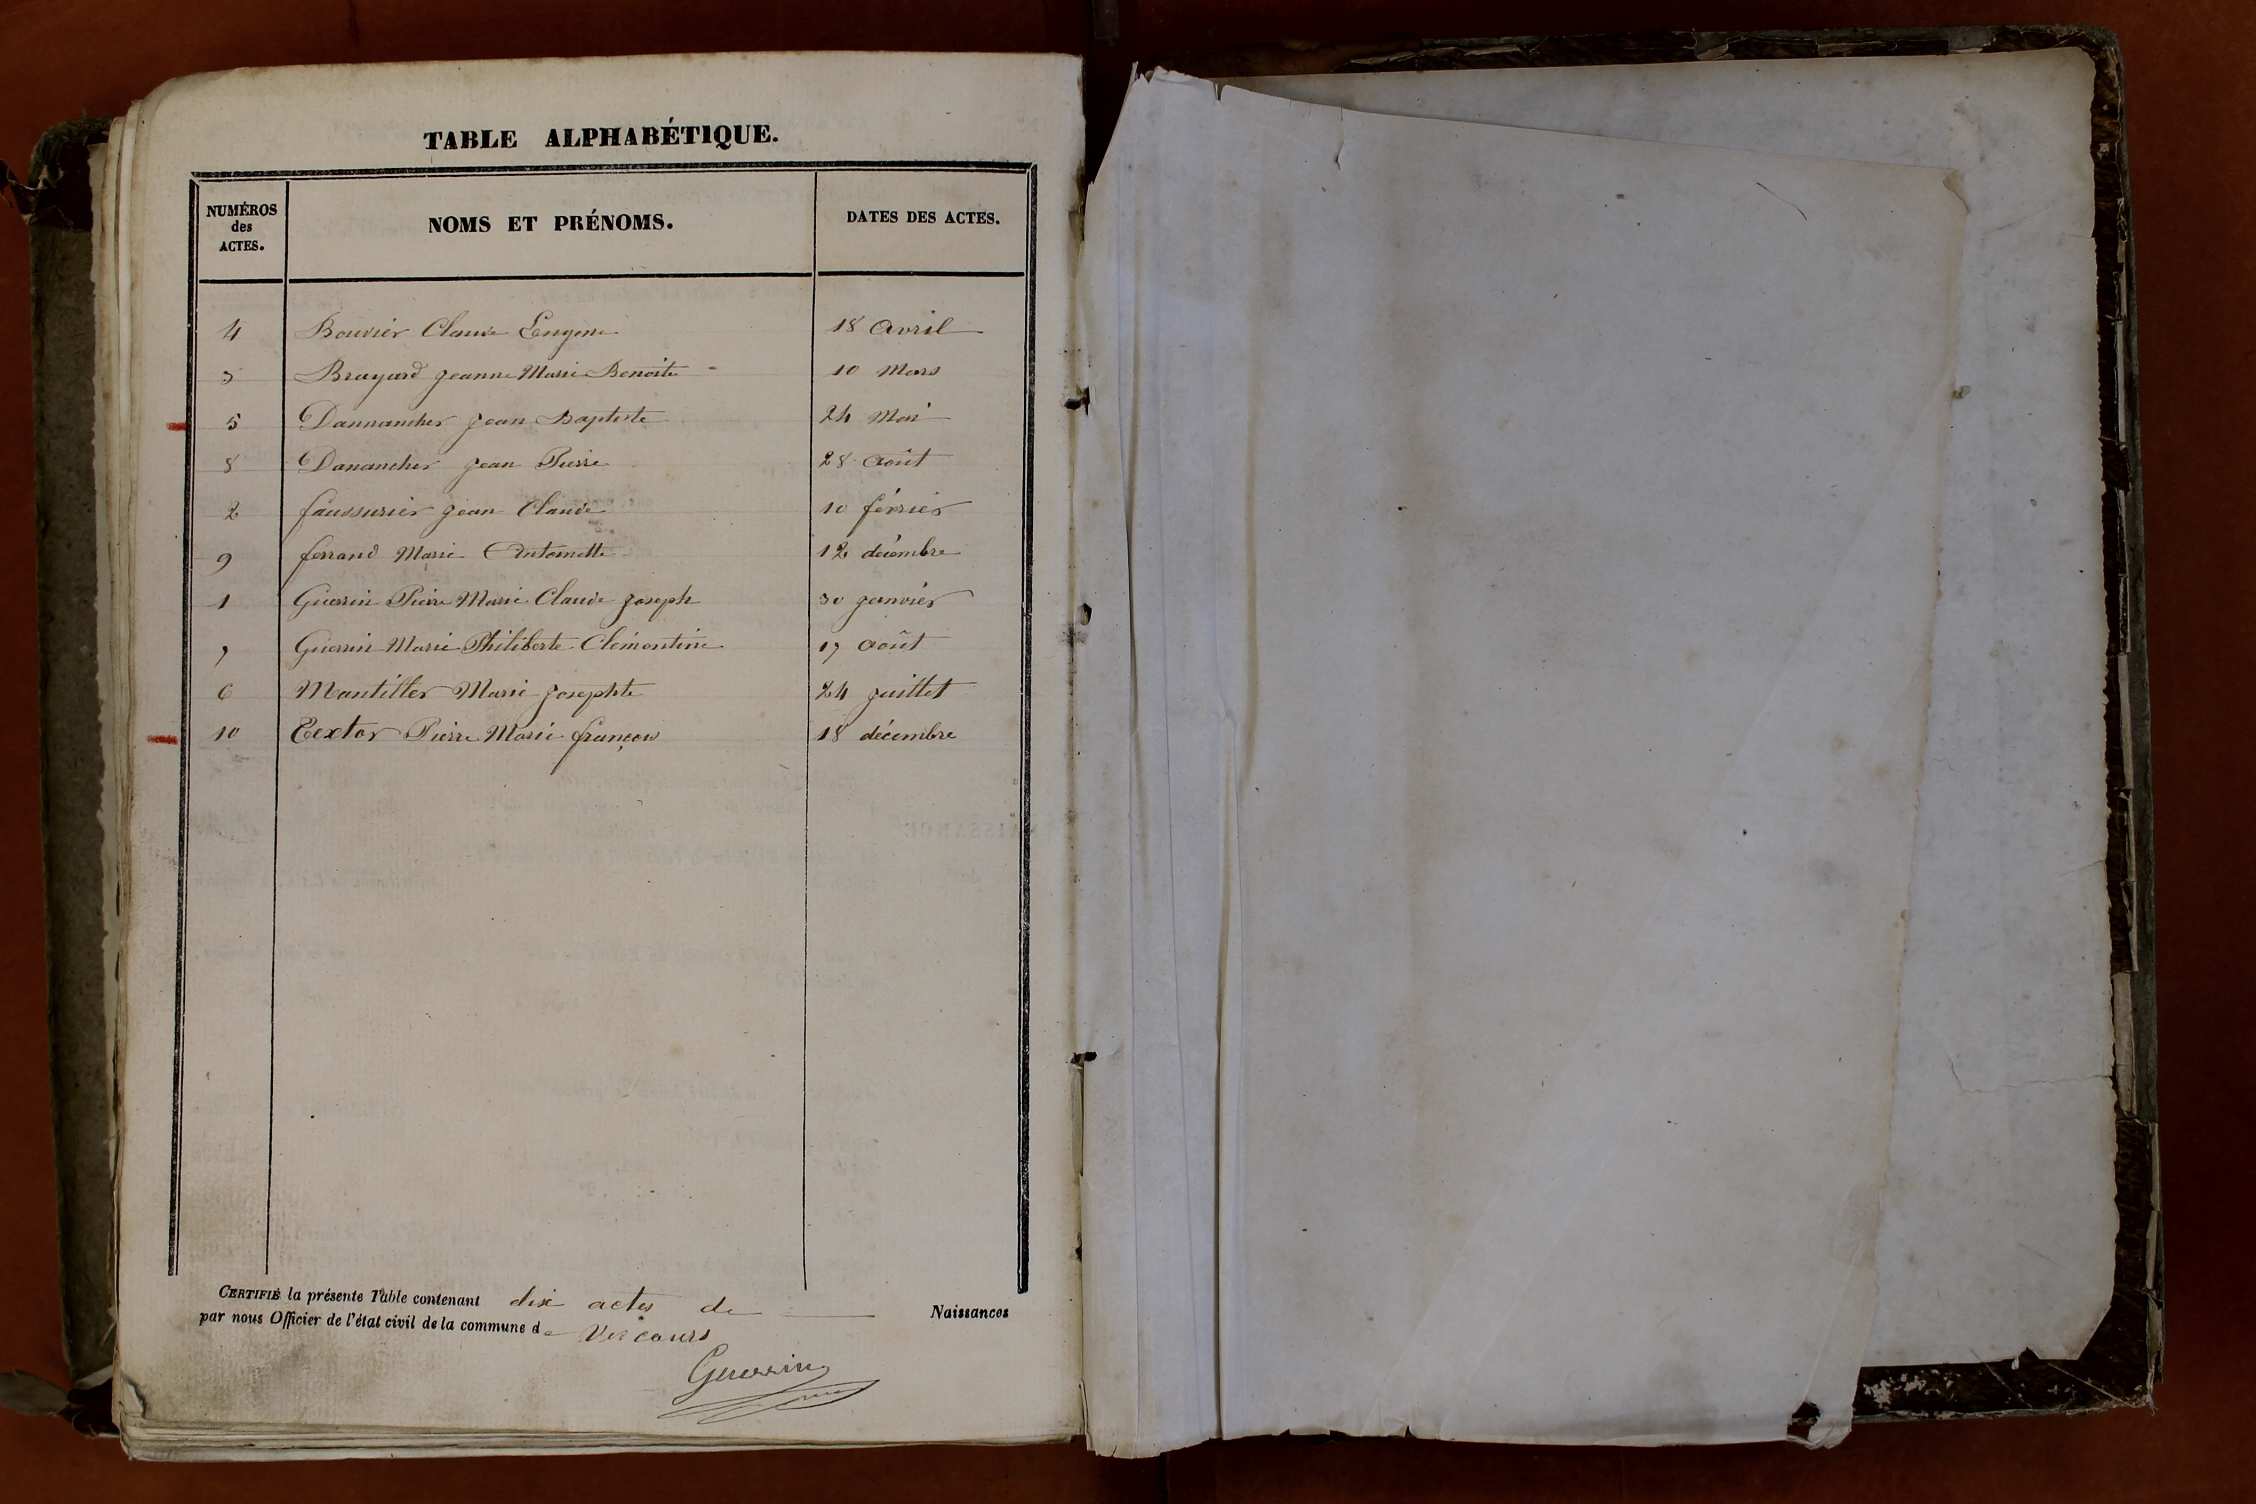 TABLE ALPHABÉTIQUE.
NUMÉROS des ACTES. NOMS ET PRÉNOMS. DATES DES ACTES.
4 Bouvier Claude Eugene 18 avril
3 Brayard Jeanne Marie Benoite 10 Mars
5 Dannancher Jean Baptiste 24 Mai
8 Danancher Jean Pierre 28 août
2 faussurier Jean Claude 10 février
9 ferrand Marie Antoinette 12 décembre
1 Guerrin Pierre Marie Claude Joseph 30 janvier
7 Guerrin Marie Philiberte Clémentine 17 août
6 Mantiller Marie Josephte 24 juillet
10 Textor Pierre Marie françois 18 décembre
CERTIFIÉ la présente Table contenant dix actes de Naissances
par nous Officier de l'état civil de la commune de
Guerrin